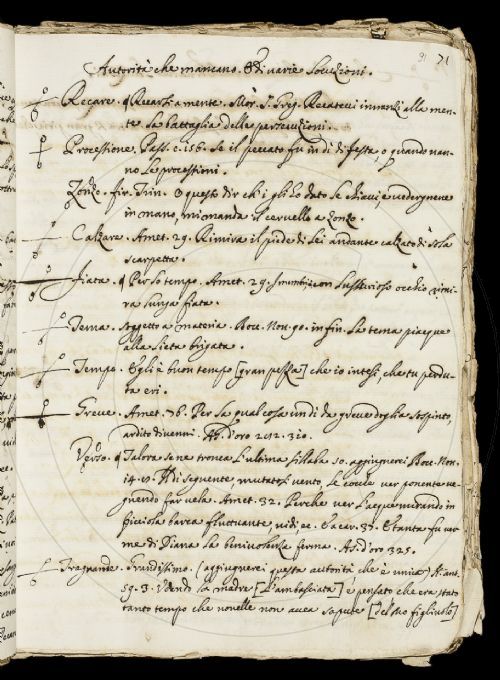 91 71
Autorità che mancano. & di varie locuzioni.
Recare. Recarsi a mente. Mor. S. Greg. Recatevi innanzi alla men-
te la battaglia delle persecuzioni.
Processione. Pass. c. 156. Se il peccato fu in dì di festa, o quando van-
no le processioni.
Zonzo. fir. Trin. O questo dir ch'i gli ho dato le chiavi, e vedergnene
in mano, mi manda il cervello a Zonzo.
Calzare. Amet. 29. Rimira il piede di lei andante calzato di sola
scarpetta.
Fiata. Per lo tempo. Amet. 29. con lussurioso occhio rimi-
ra lunga fiata.
Tema. soggetto a materia. Bocc. Nov. 90. in fin. La tema piacque
alla lieta brigata.
Tempo. Egli è buon tempo [gran pezza] che io intesi, che tu perdu-
ta eri.
Greve. Amet. 76. Per la qual cosa undi da greve doglia sospinto,
ardito divenni. As. d'oro 292. 310.
Verso. Talora se ne tronca l'ultima sillaba so. aggiugnerei Bocc. Nov.
14. Il dì seguente, mutatosi vento, le cocche ver ponente ve-
gnendo far vela. Amet. 32. Perchè ver l'acque mirando in
picciola barca fluttuante vidi ec. E a car. 37. E tanta fu ver
me di Diana la benivolenza ferma. As. d'oro 325.
Tragrande. Grandissimo. [aggiugnerei questa autorità che è unica]
59. 3. Vdendo la madre [l'ambasciata] è pensato che era stato
tanto tempo che novelle non avea sapute [del suo figliuolo]